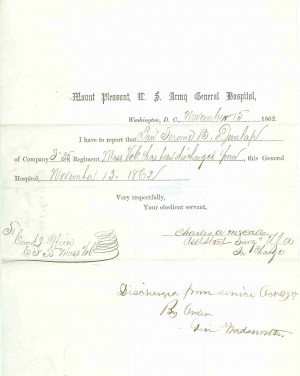 Mount Pleasant, U. S. Army General Hospital,
Washington, D. C., November 15 1862.
I have to report that Jerome B. Dunlap
of Company Regiment Mass Vols has been discharged from, this General
Hospital, November 13. 1862
Very respectfully,
Your obedient servant,
Charles A. McCall
Assistant Surg U.S.A
In Charge
To
Comdg Officer
Mass Vol
Discharged from service
By Order
Wadsworth